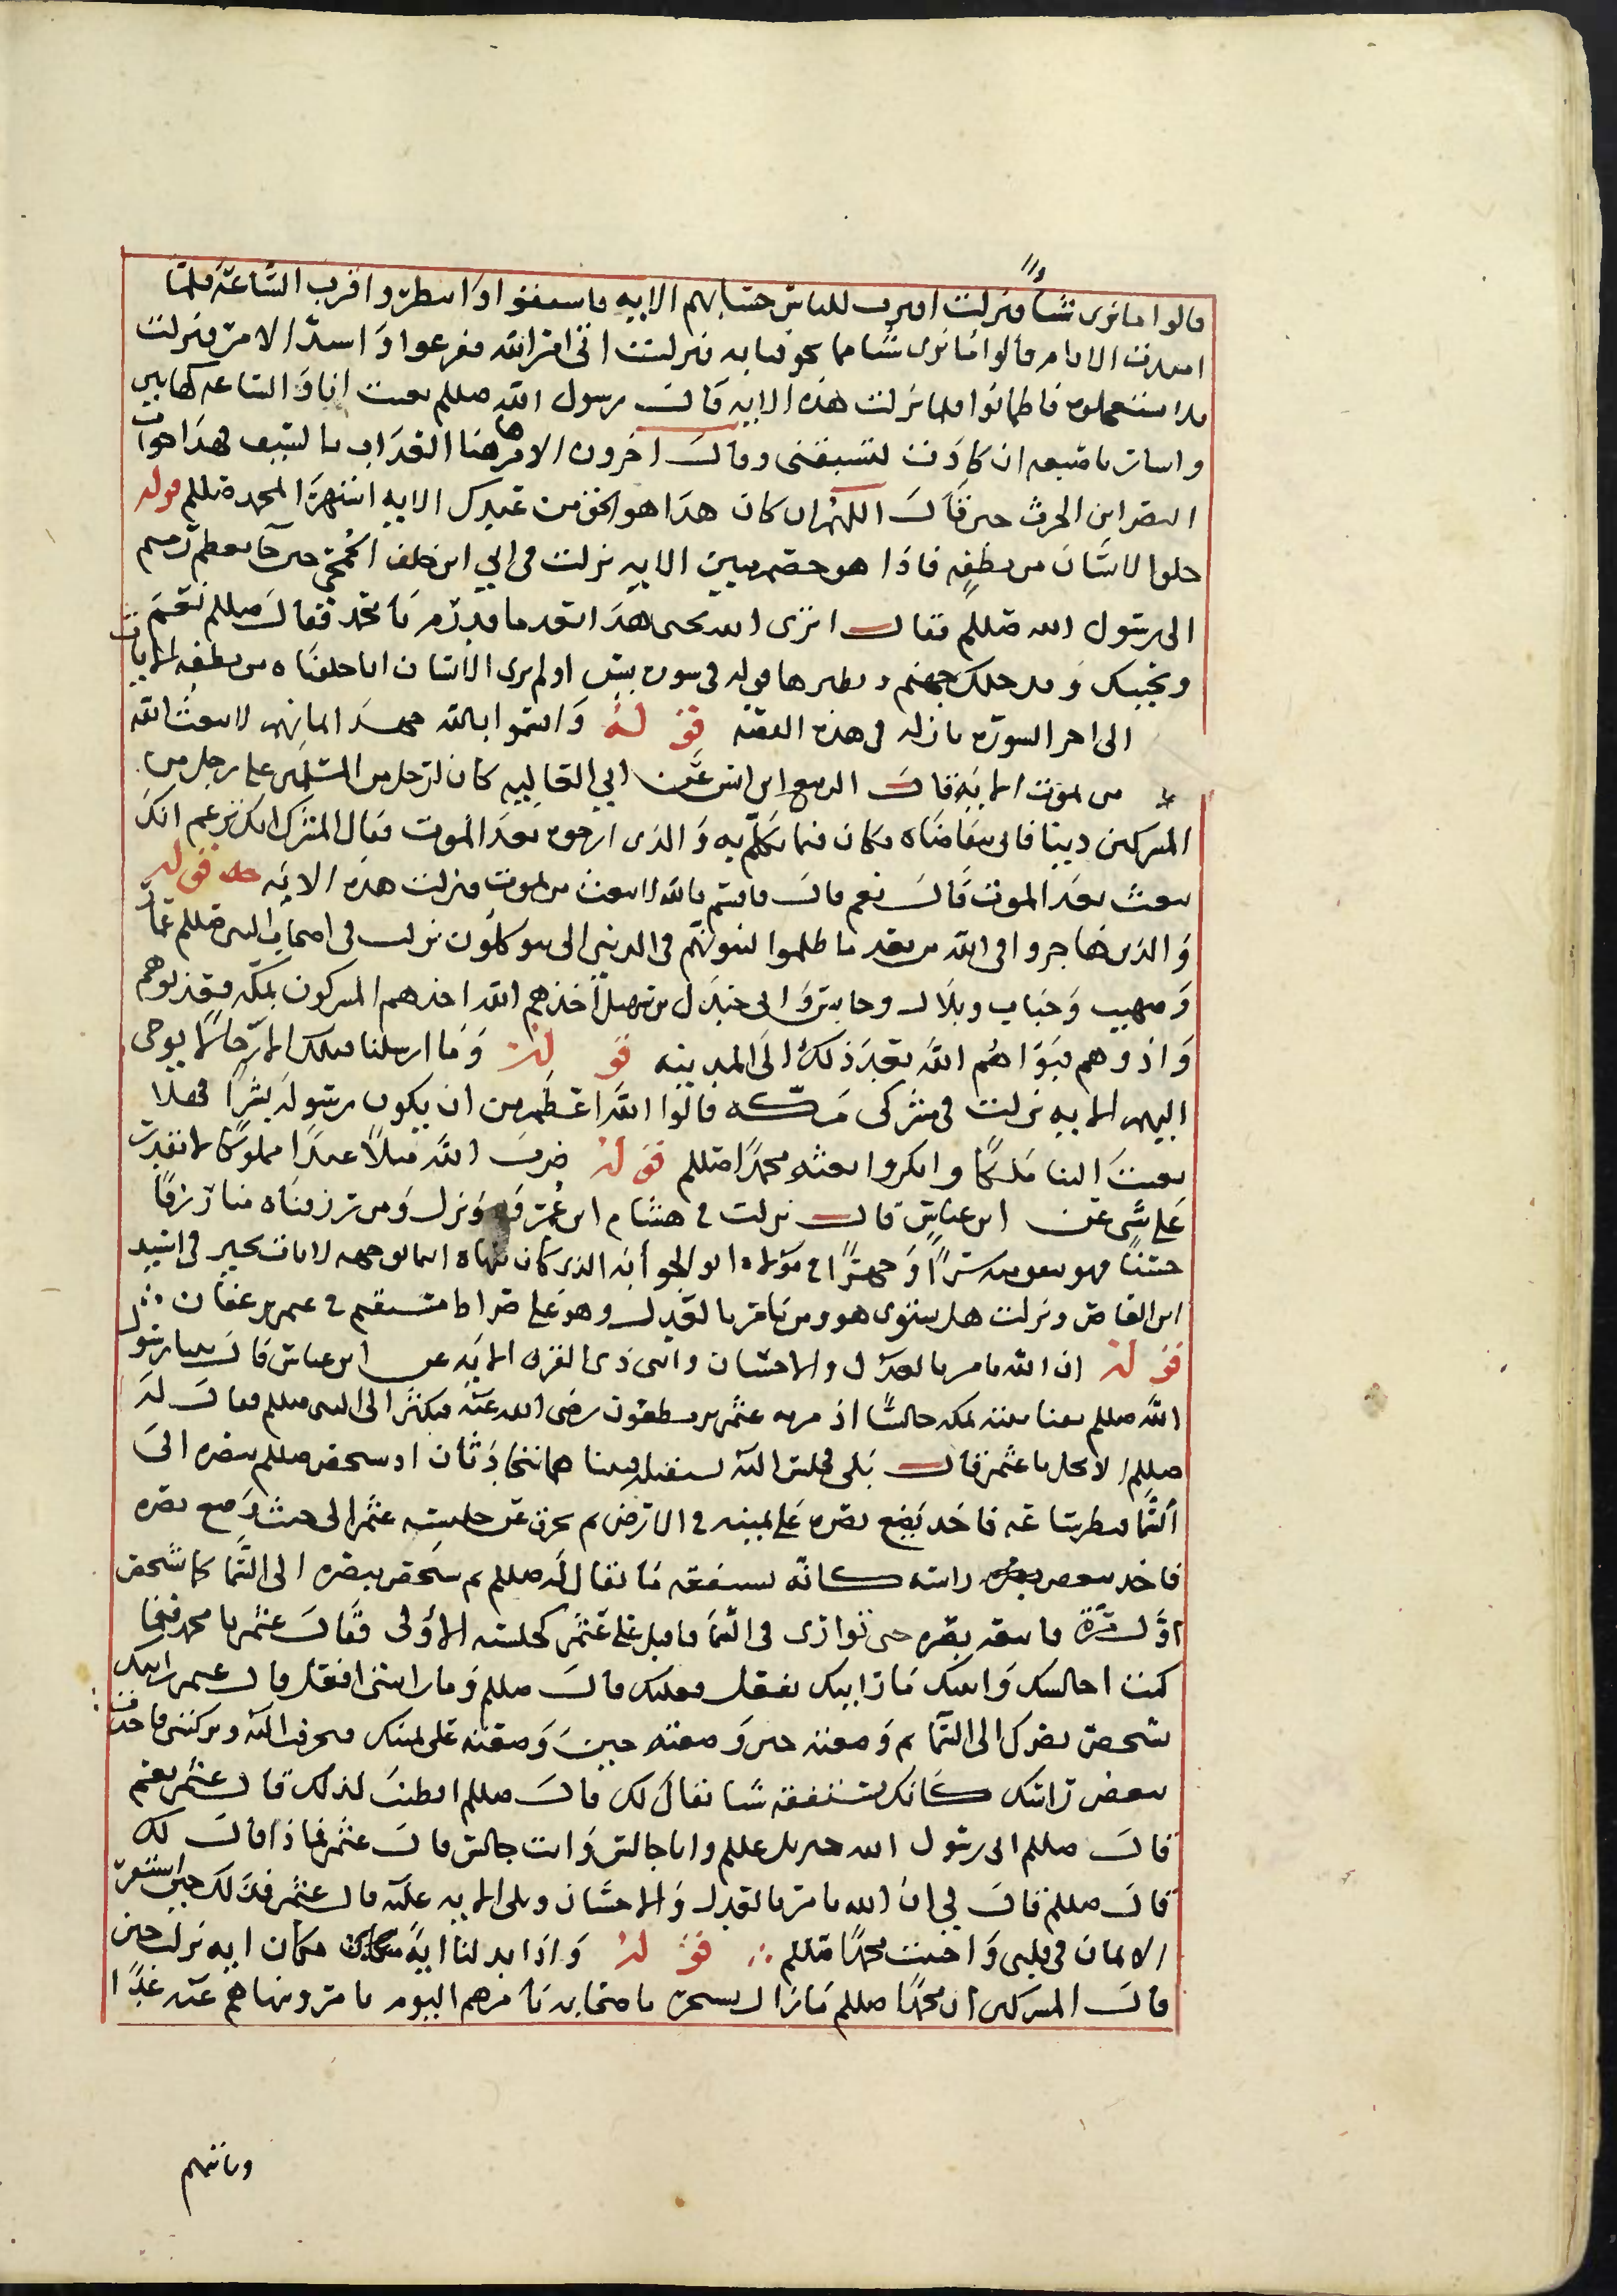 قالوا ما نرى شيئاً فنزلت اقترب للناس حسابهم الايه فاشفقوا وانتظروا قرب الساعة فلما
امتدت الايام قالوا ما نرى شيئا مما تخوفنا به فنزلت اتى امر الله ففزعوا واشتد الامر فنزلت
فلا تستعجلوه فاطمانوا فلما نزلت هذه الايه قال رسول الله صللم بعثت انا والساعه كهاتين
واشار باصبعه ان كادت لتسبقني وقال اخرون الامر هاهنا العذاب بالسيف هذا جواب
النضر ابن الحرث حين قال اللهم ان كان هذا هو الحق من عندك الايه استهزا لمحمد صللم قوله
خلق الانسان من نطفه فاذا هو خصيم مبين الايه نزلت في ابي ابن خلف الجمحي حين جا بعظم رميم
الى رسول الله صللم فقال اترى الله يحيي هذا بعد ما قد رم يا محمد فقال صللم نعم
ويحييك ويدخلك جهنم ونظيرها قوله في سوره يس اولم يرى الانسان انا خلقناه من نطفه الايات
الى اخر السورة نازله في هذه القصه قوله واقسموا بالله جهد ايمانهم لا يبعث الله
من يموت الايه قال الربيع ابن انس عن ابي العاليه كان لرجل من المسلمين على رجل من
المشركين دينا فاتى يتقاضاه فكان فيما تكلم به والذي ارجوه بعد الموت فقال المشرك انك تزعم انك
تبعث بعد الموت قال نعم قال فاقسم بالله لا يبعث من يموت فنزلت هذه الايه قوله
والذين هاجروا في الله من بعد ما ظلموا لنبوئنهم في الدنيا الى يتوكلون نزلت في اصحاب النبي صللم عمار
وصهيب وخباب وبلال وعابس وابي جندل بن سهيل اخذهم المشركون بمكه فعذبوهم
واذوهم فبواهم الله بعد ذلك الى المدينه قوله وما ارسلنا من قبلك الا رجالا يوحى
اليهم الايه نزلت في مشركي مكه قالوا الله اعظم من ان يكون رسوله بشرا فهلا
بعث الينا ملكا وانكروا بعثه محمدا صللم قوله ضرب الله مثلا عبدا مملوكا لا يقدر
على شي عن ابن عباس قال نزلت في هشام ابن عمرو ونزل ومن رزقناه منا رزقا
حسنا فهو ينفق منه سرا وجهرا في مولاه ابو الجوا نه الذي كان ينهاه اينما يوجهه لا يات بخير في اسيد
ابن العاص ونزلت هل يستوى هو ومن يامر بالعدل وهو على صراط مستقيم في عثمن بن عفان
قوله ان الله يامر بالعدل والاحسان وايتي ذى القربى الايه عن ابن عباس قال بينما رسول
الله صللم بفنا بيته بمكه جالسا اذ مر به عثمن بن مظعون رضى الله عنه فكشر الى النبي صللم فقال له
صللم الا تجلس يا عثمن قال بلى فجلس اليه مستقبله فبينما هما يتحادثان اذ شخص صللم بصره الى
السما فنظر ساعه فاخذ يضع بصره على يمينه في الارض ثم تحرف عن جليسه عثمن الى حيث وضع بصره
فاخذ ينغض راسه كانه يستفقه ما يقال له صللم ثم شخص ببصره الى السما كما شخص
اول مرة فاتبعه بصره حتى توارى في السما فاقبل على عثمن كجلسته الاولى فقال عثمن يا محمد فيما
كنت اجالسك واتيك ما رايتك تفعل فعلتك قال صللم وما رايتني افعل قال عثمن رايتك
تشخص بصرك الى السما ثم وضعته حين وضعته على يمينك فتحرفت اليه وتركتني فاخذت
تنغض راسك كانك تستفقه شيا يقال لك قال صللم افطنت لذلك قال عثمن نعم
قال صللم اتى رسول الله جبريل عللم وانا جالس وانت جالس قال عثمن فماذا قال لك
قال صللم قال لي ان الله يامر بالعدل والاحسان وتلى الايه عليه قال عثمن فذلك حين استقر
الايمان في قلبي واحببت محمدا صللم قوله واذا بدلنا اية مكان ايه نزلت حين
قال المشركين ان محمدا صللم ما زال يسخر باصحابه يامرهم اليوم بامر وينهاهم عنه غدا
وياتيهم